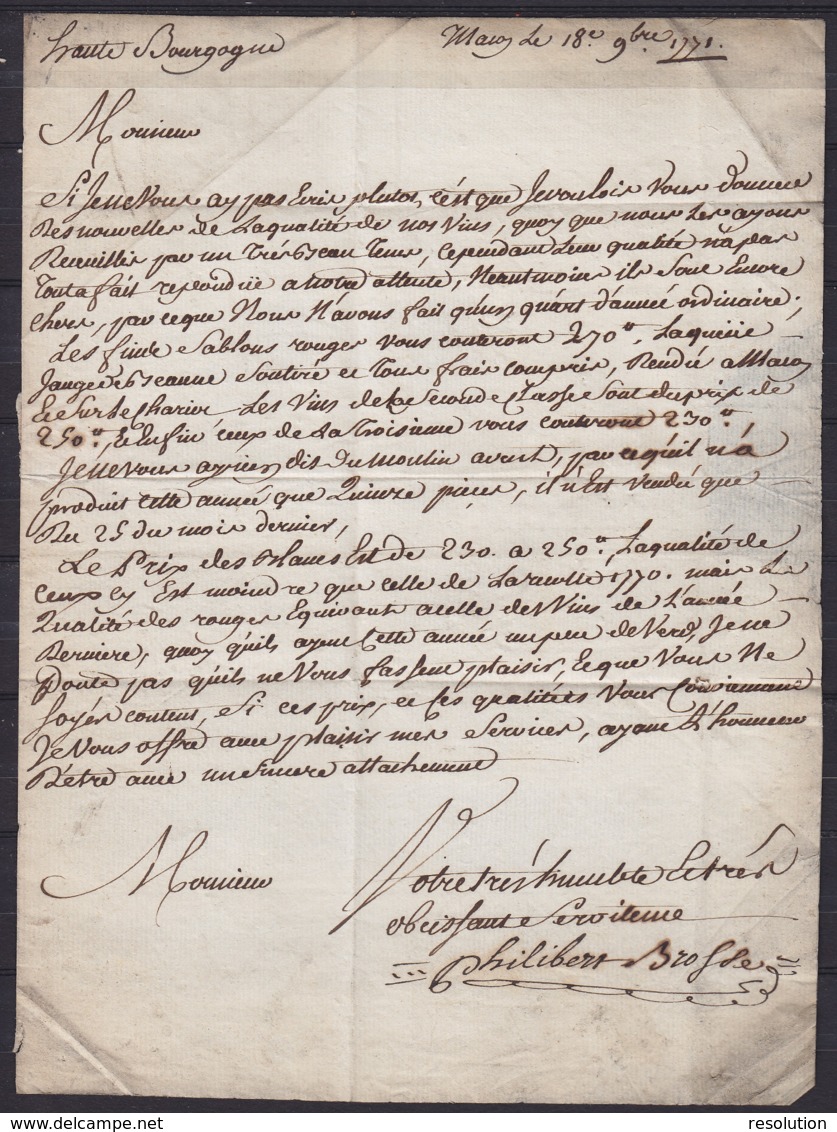 haute Bourgogne
Macon Le 18.e 9bre 1771.
Monsieur
Si Jene Vous ay pas Ecris plutos, c'est que Jevoulois Vous donner
Des nouvelles de Laqualité de nos Vins, quoy que nous Les ayons
Recueillis par un Trés Beau Tems, cependant Leur qualité n'a pas
Tout a fait repondüe a notre attente, Neantmoins ils sont Encore
Chers, par ceque Nous N'avons fait qu'un quart d'année ordinaire;
Les fins de Sablons rouges Vous couteront 270tt. Laqueüe
Jauge de Beaune Soutiré et Tous frais compris, Rendüe a Macon
Et Sur Le Charior Les Vins de La Seconde Classe Sont du prix de
250tt, Et Enfin ceux de La Troisieme vous couteront 230.tt
Jene vous ay rien dit du Moulin avent, par cequ'il n'á
produit cette année que Quinze pieces, il n'Est Vendü que
Du 25 du mois dernier,
Le Prix des Blancs Est de 230. a 250tt. Laqualité de
Ceux cy Est moindre que celle de La recolte 1770. mais La
Qualité des rouges Equivaut acelle des Vins de L'année
Derniere, quoy qu'ils ayent Cette année un peu de Verd, Je ne
Doute pas qu'ils ne Vous fassent plaisir, Et que Vous Ne
Soyés content, Si ces prix, et Ces qualités Vous Conviennent
Je Vous offre avec plaisir mes Services, ayant L'honneur
D'être avec un Sincere attachement
Monsieur
Votre trés humble Et trés
obeissant Serviteur
Philibert Brosse
resolution